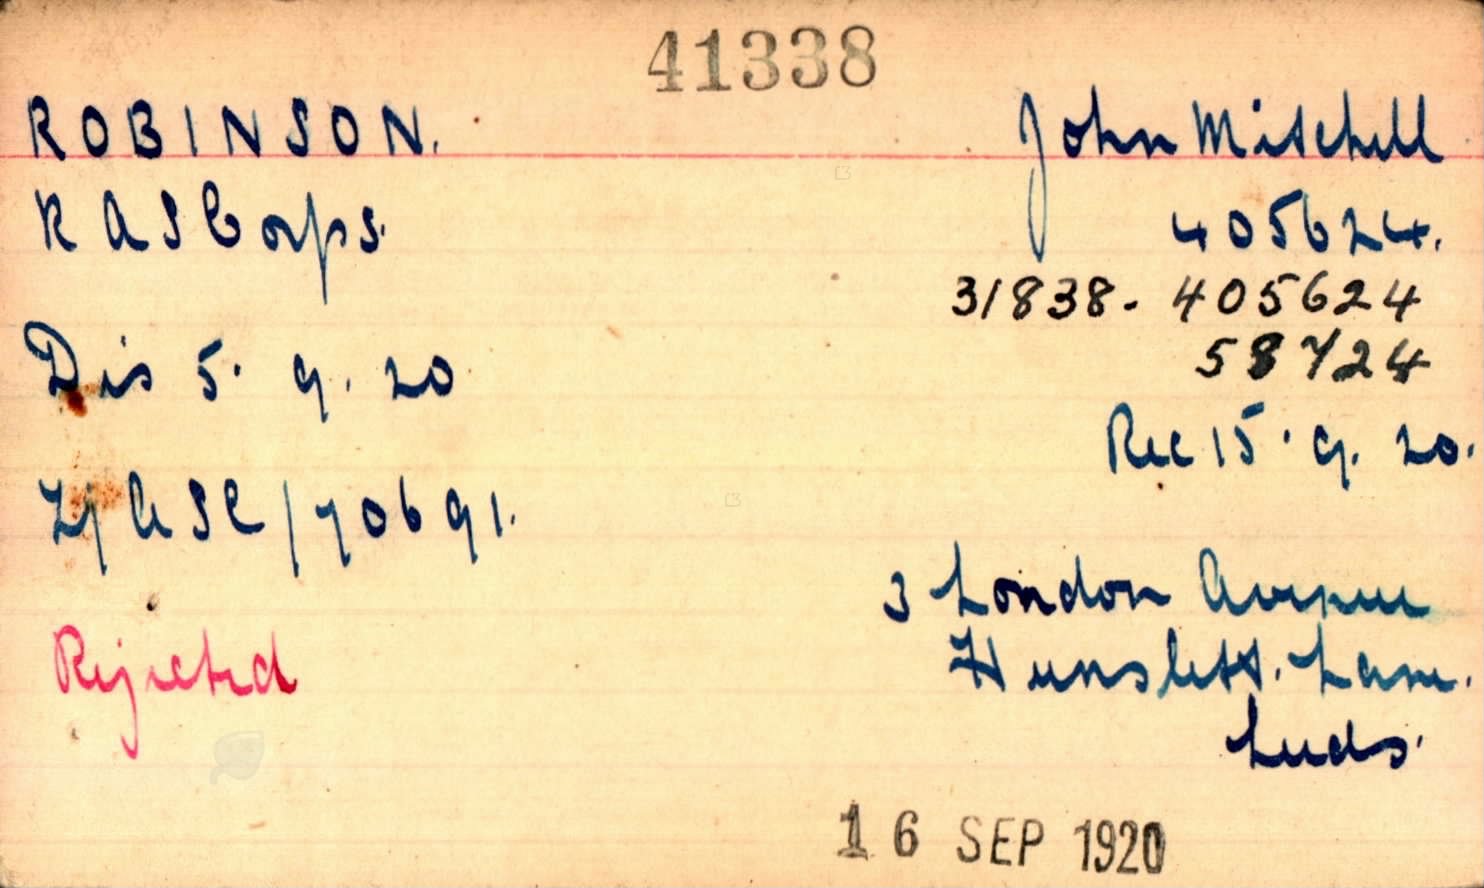 41338
ROBINSON. John Mitchell
R A S Corps. 405624.
31838 - 405624
Dis 5. 9. 20 58724
Rec 15. 9. 20.
ASC/70691.
3 London Avenue
Rejected Hunslett. Lane.
Leeds.
16 SEP 1920